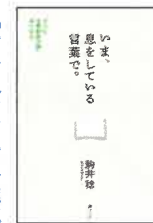 いま、
息をしている
言葉で。
駒井稔